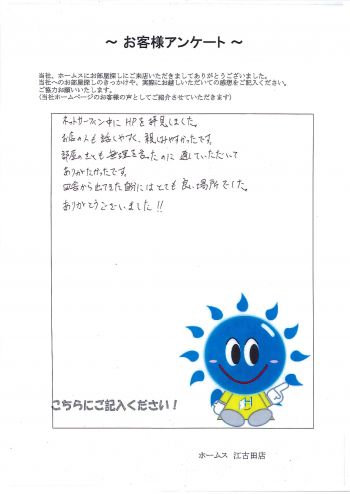 ～ お客様アンケート ～
当社、ホームスにお部屋探しにご来店いただきましてありがとうございました。
当社へのお部屋探しのきっかけや、実際にお越しいただいての感想をご記入ください。
ご協力お願いいたします。
（当社ホームページのお客様の声としてご紹介させていただきます）
ネットサーフィン中に HPを拝見しました。
お店の人も話しやすく、親しみやすかったです。
部屋のことも無理を言ったのに 通していただいて
ありがたかったです。
田舎から出てきた自分にはとても良い場所でした。
ありがとうございました!!
こちらにご記入ください！
ホームス 江古田店